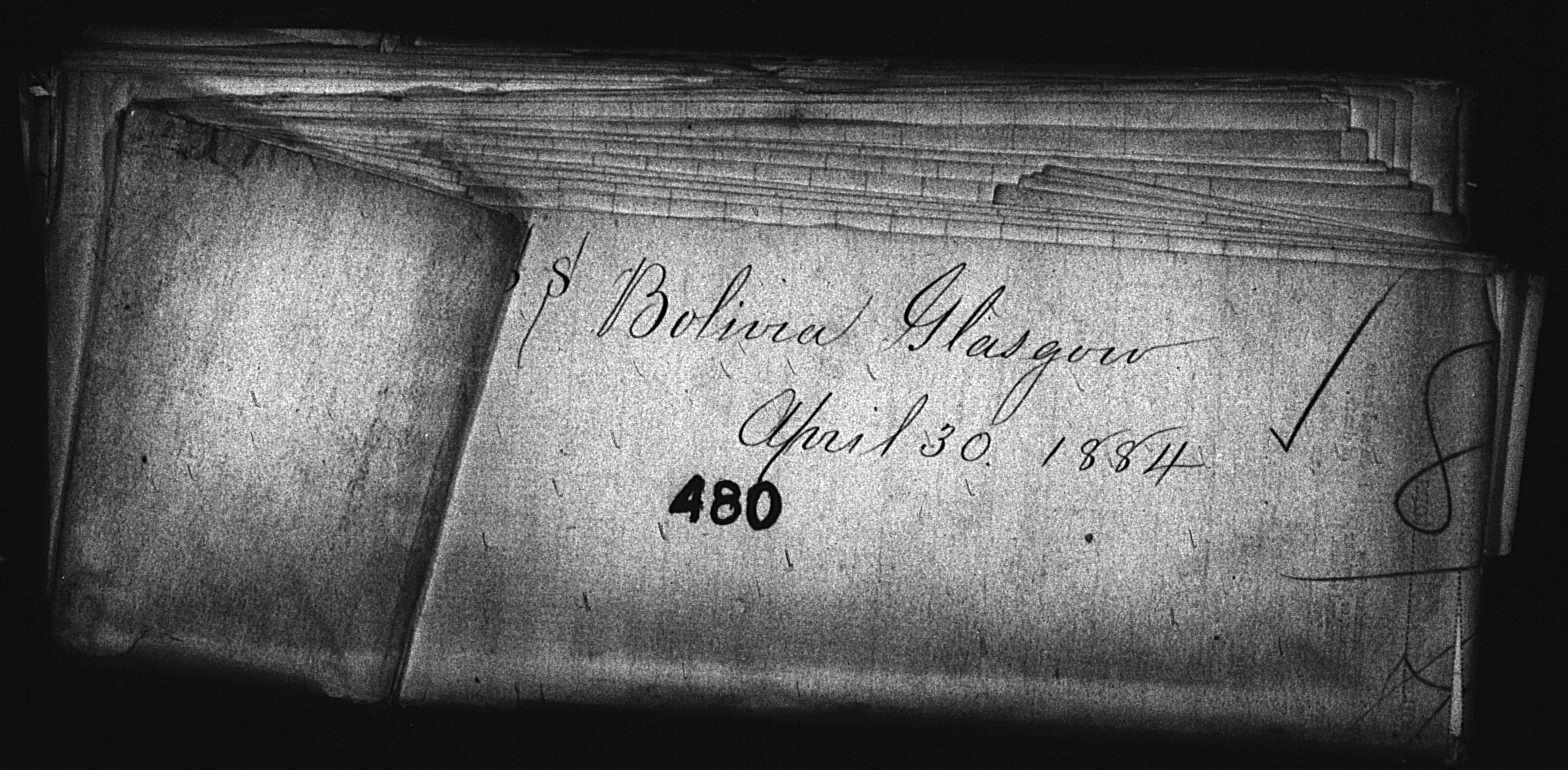 SS Bolivia Glasgow
April 30. 1884
480
8